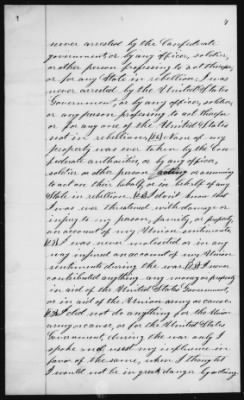 never arrested by the Confederate
government or by any officer, soldier,
or other person professing to act therefor
or for any State in rebellion. I was
never arrested by the United States
Government, or by any officer, soldier,
or any person professing to act therefor
or for any one of the United States
not in rebellion. None of my
property was ever taken by the Con-
federate authorities, or by any officer,
soldier or other person acting or assuming
to act on their behalf, or in behalf of any
State in rebellion. I don't know that
I was ever threatened with damage or
injury to my person, family, or property
on account of my Union sentiments.
I was never molested or in any
way injured on account of my Union
sentiments during the war. I never
contributed anything any money or property
in aid of the United States Government,
or in aid of the Union army or cause.
I did not do anything for the Union
army or cause, or for the United States
Government, during the war only I
spoke and used my influence in
favor of the same, when I thought
I would not be in great danger by so doing.